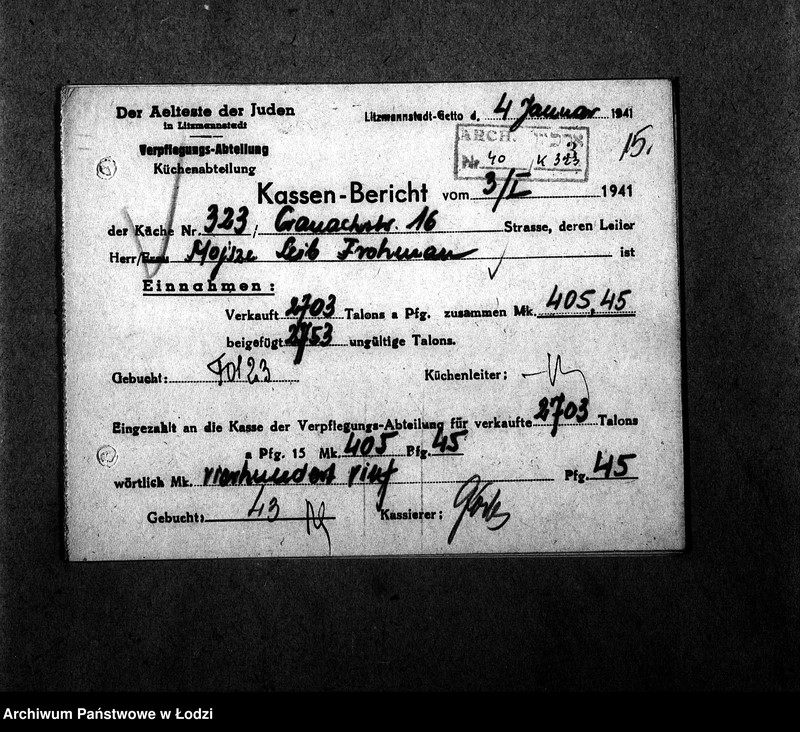 Der Aelteste der Juden
in Litzmannstadt
Verpflegungs-Abteilung
Küchenabteilung
Litzmannstadt-Getto d. 4 Januar 1941
ARCH. ארכיו
Nr 40 / K 323
3
15.
Kassen-Bericht vom 3/I 1941
der Küche Nr. 323 / Cranachstr. 16 Strasse, deren Leiler
Herr/Frau Mojsze Leib Frohman ist
Einnahmen:
Verkauft 2703 Talons a Pfg. zusammen Mk. 405,45
beigefügt 2753 ungültige Talons.
Gebucht: Fol 23 Küchenleiter:
Eingezahlt an die Kasse der Verpflegungs-Abteilung für verkaufte 2703 Talons
a Pfg. 15 Mk. 405 Pfg. 45
wörtlich Mk. vierhundert vinf Pfg. 45
Gebucht: 43 Kassierer:
Archiwum Państwowe w Łodzi